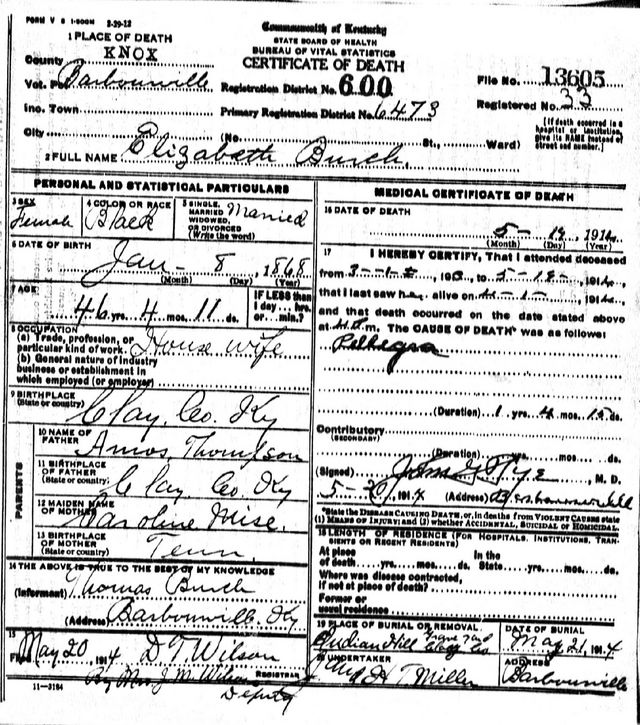 FORM V S 1-500M 2-29-12
Commonwealth of Kentucky
STATE BOARD OF HEALTH
BUREAU OF VITAL STATISTICS
CERTIFICATE OF DEATH
1 PLACE OF DEATH
County KNOX
Vot. Pct Barbourville
Registration District No. 600
File No. 13605
Inc. Town
Primary Registration District No. 6473
Registered No. 33
City
(No. St., Ward)
[If death occurred in a hospital or institution, give its NAME instead of street and number.]
2 FULL NAME Elizabeth Burch.
PERSONAL AND STATISTICAL PARTICULARS
3 SEX
Female
4 COLOR OR RACE
Black
5 SINGLE, MARRIED WIDOWED, OR DIVORCED (Write the word)
Married
6 DATE OF BIRTH
Jan - 8, 1868
(Month) (Day) (Year)
7 AGE
46 yrs. 4 mos. 11 ds.
IF LESS than 1 day... hrs. or...min.?
8 OCCUPATION
(a) Trade, profession, or particular kind of work. House wife
(b) General nature of industry business or establishment in which employed (or employer)
9 BIRTHPLACE
(State or country)
Clay. Co. Ky
PARENTS
10 NAME OF FATHER
Amos, Thompson
11 BIRTHPLACE OF FATHER
(State or country)
Clay. Co Ky
12 MAIDEN NAME OF MOTHER
Caroline Mise.
13 BIRTHPLACE OF MOTHER
(State or country)
Tenn.
14 THE ABOVE IS TRUE TO THE BEST OF MY KNOWLEDGE
(Informant) Thomas Burch
(Address) Barbourville Ky
15
Filed May 20 1914 D T Wilson
REGISTRAR
By Mrs J. M. Wilson
Deputy
11-3184
MEDICAL CERTIFICATE OF DEATH
16 DATE OF DEATH
5- 19, 1914
(Month) (Day) (Year)
17 I HEREBY CERTIFY, That I attended deceased
from 3-1-, 191, to 5-18-, 1914,
that I last saw her alive on -1-, 1914,
and that death occurred on the date stated above
at m. The CAUSE OF DEATH* was as follows:
Pellegra
(Duration) 1 yrs. mos. ds.
Contributory
(SECONDARY)
(Duration) yrs. mos. ds.
(Signed) Tye, M. D.
5-20, 1914 (Address) Barbourville
*State the DISEASE CAUSING DEATH, or, in deaths from VIOLENT CAUSES state (1) MEANS OF INJURY; and (2) whether ACCIDENTAL, SUICIDAL or HOMICIDAL.
18 LENGTH OF RESIDENCE (FOR HOSPITALS, INSTITUTIONS, TRANSIENTS OR RECENT RESIDENTS)
At place of death yrs. mos. ds. In the State yrs. mos. ds.
Where was disease contracted, if not at place of death?
Former or usual residence
19 PLACE OF BURIAL OR REMOVAL
Indian Hill Grave Yard Clay Co
DATE OF BURIAL
May 21, 1914
20 UNDERTAKER
H T Miller
ADDRESS
Barbourville